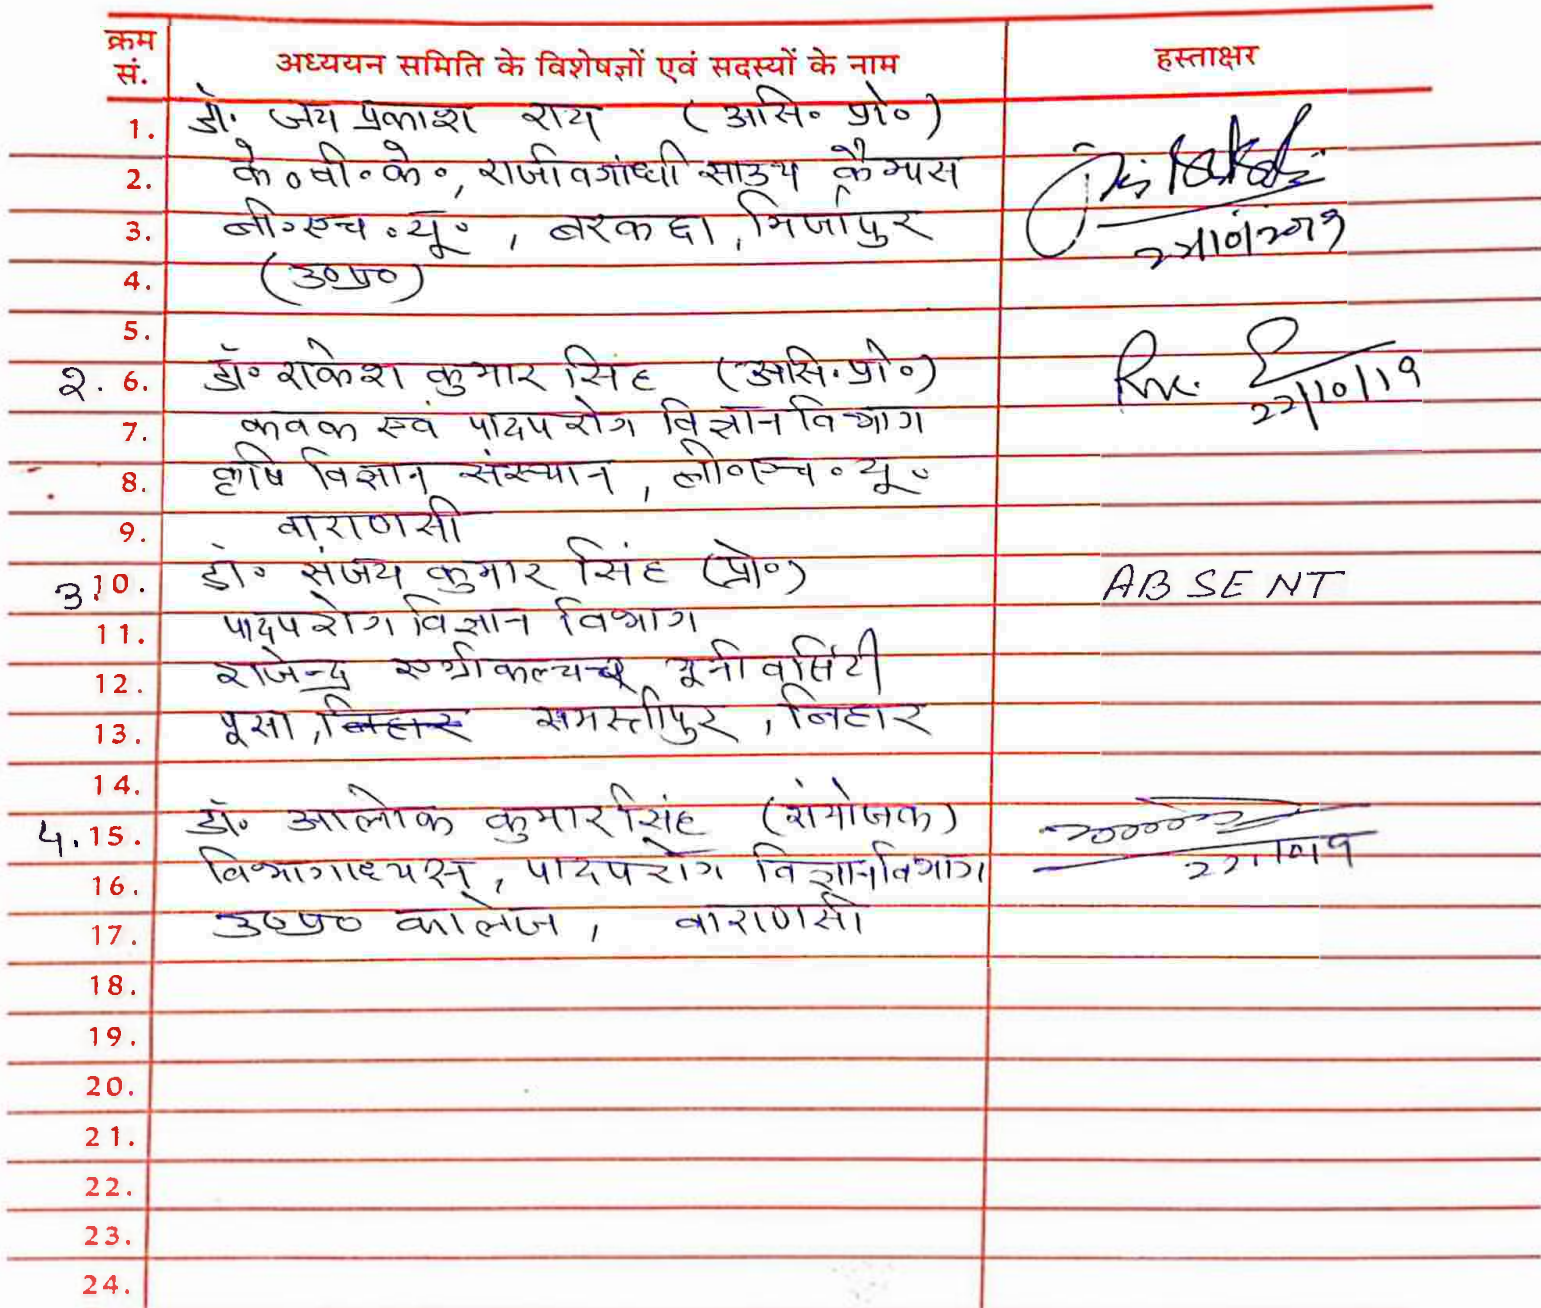 क्रम सं. अध्ययन समिति के विशेषज्ञों एवं सदस्यों के नाम हस्ताक्षर
1. डॉ॰ जय प्रकाश राय (असि॰ प्रो॰)
2. के॰वी॰के॰, राजीव गांधी साउथ कैम्पस
3. बी॰एच॰यू॰, बरकछा, मिर्जापुर
22/10/2019
4. (उ०प्र०)
5.
2. 6. डॉ॰ राकेश कुमार सिंह (असि॰प्रो॰)
22/10/19
7. कवक एवं पादप रोग विज्ञान विभाग
8. कृषि विज्ञान संस्थान, बी॰एच॰यू॰
9. वाराणसी
3. 10. डॉ॰ संजय कुमार सिंह (प्रो॰) ABSENT
11. पादप रोग विज्ञान विभाग
12. राजेन्द्र एग्रीकल्चर यूनीवर्सिटी
13. पूसा, बिहार समस्तीपुर, बिहार
14.
4. 15. डॉ॰ आलोक कुमार सिंह (संयोजक)
16. विभागाध्यक्ष, पादप रोग विज्ञान विभाग
17. उ०प्र० कालेज, वाराणसी
18.
19.
20.
21.
22.
23.
24.